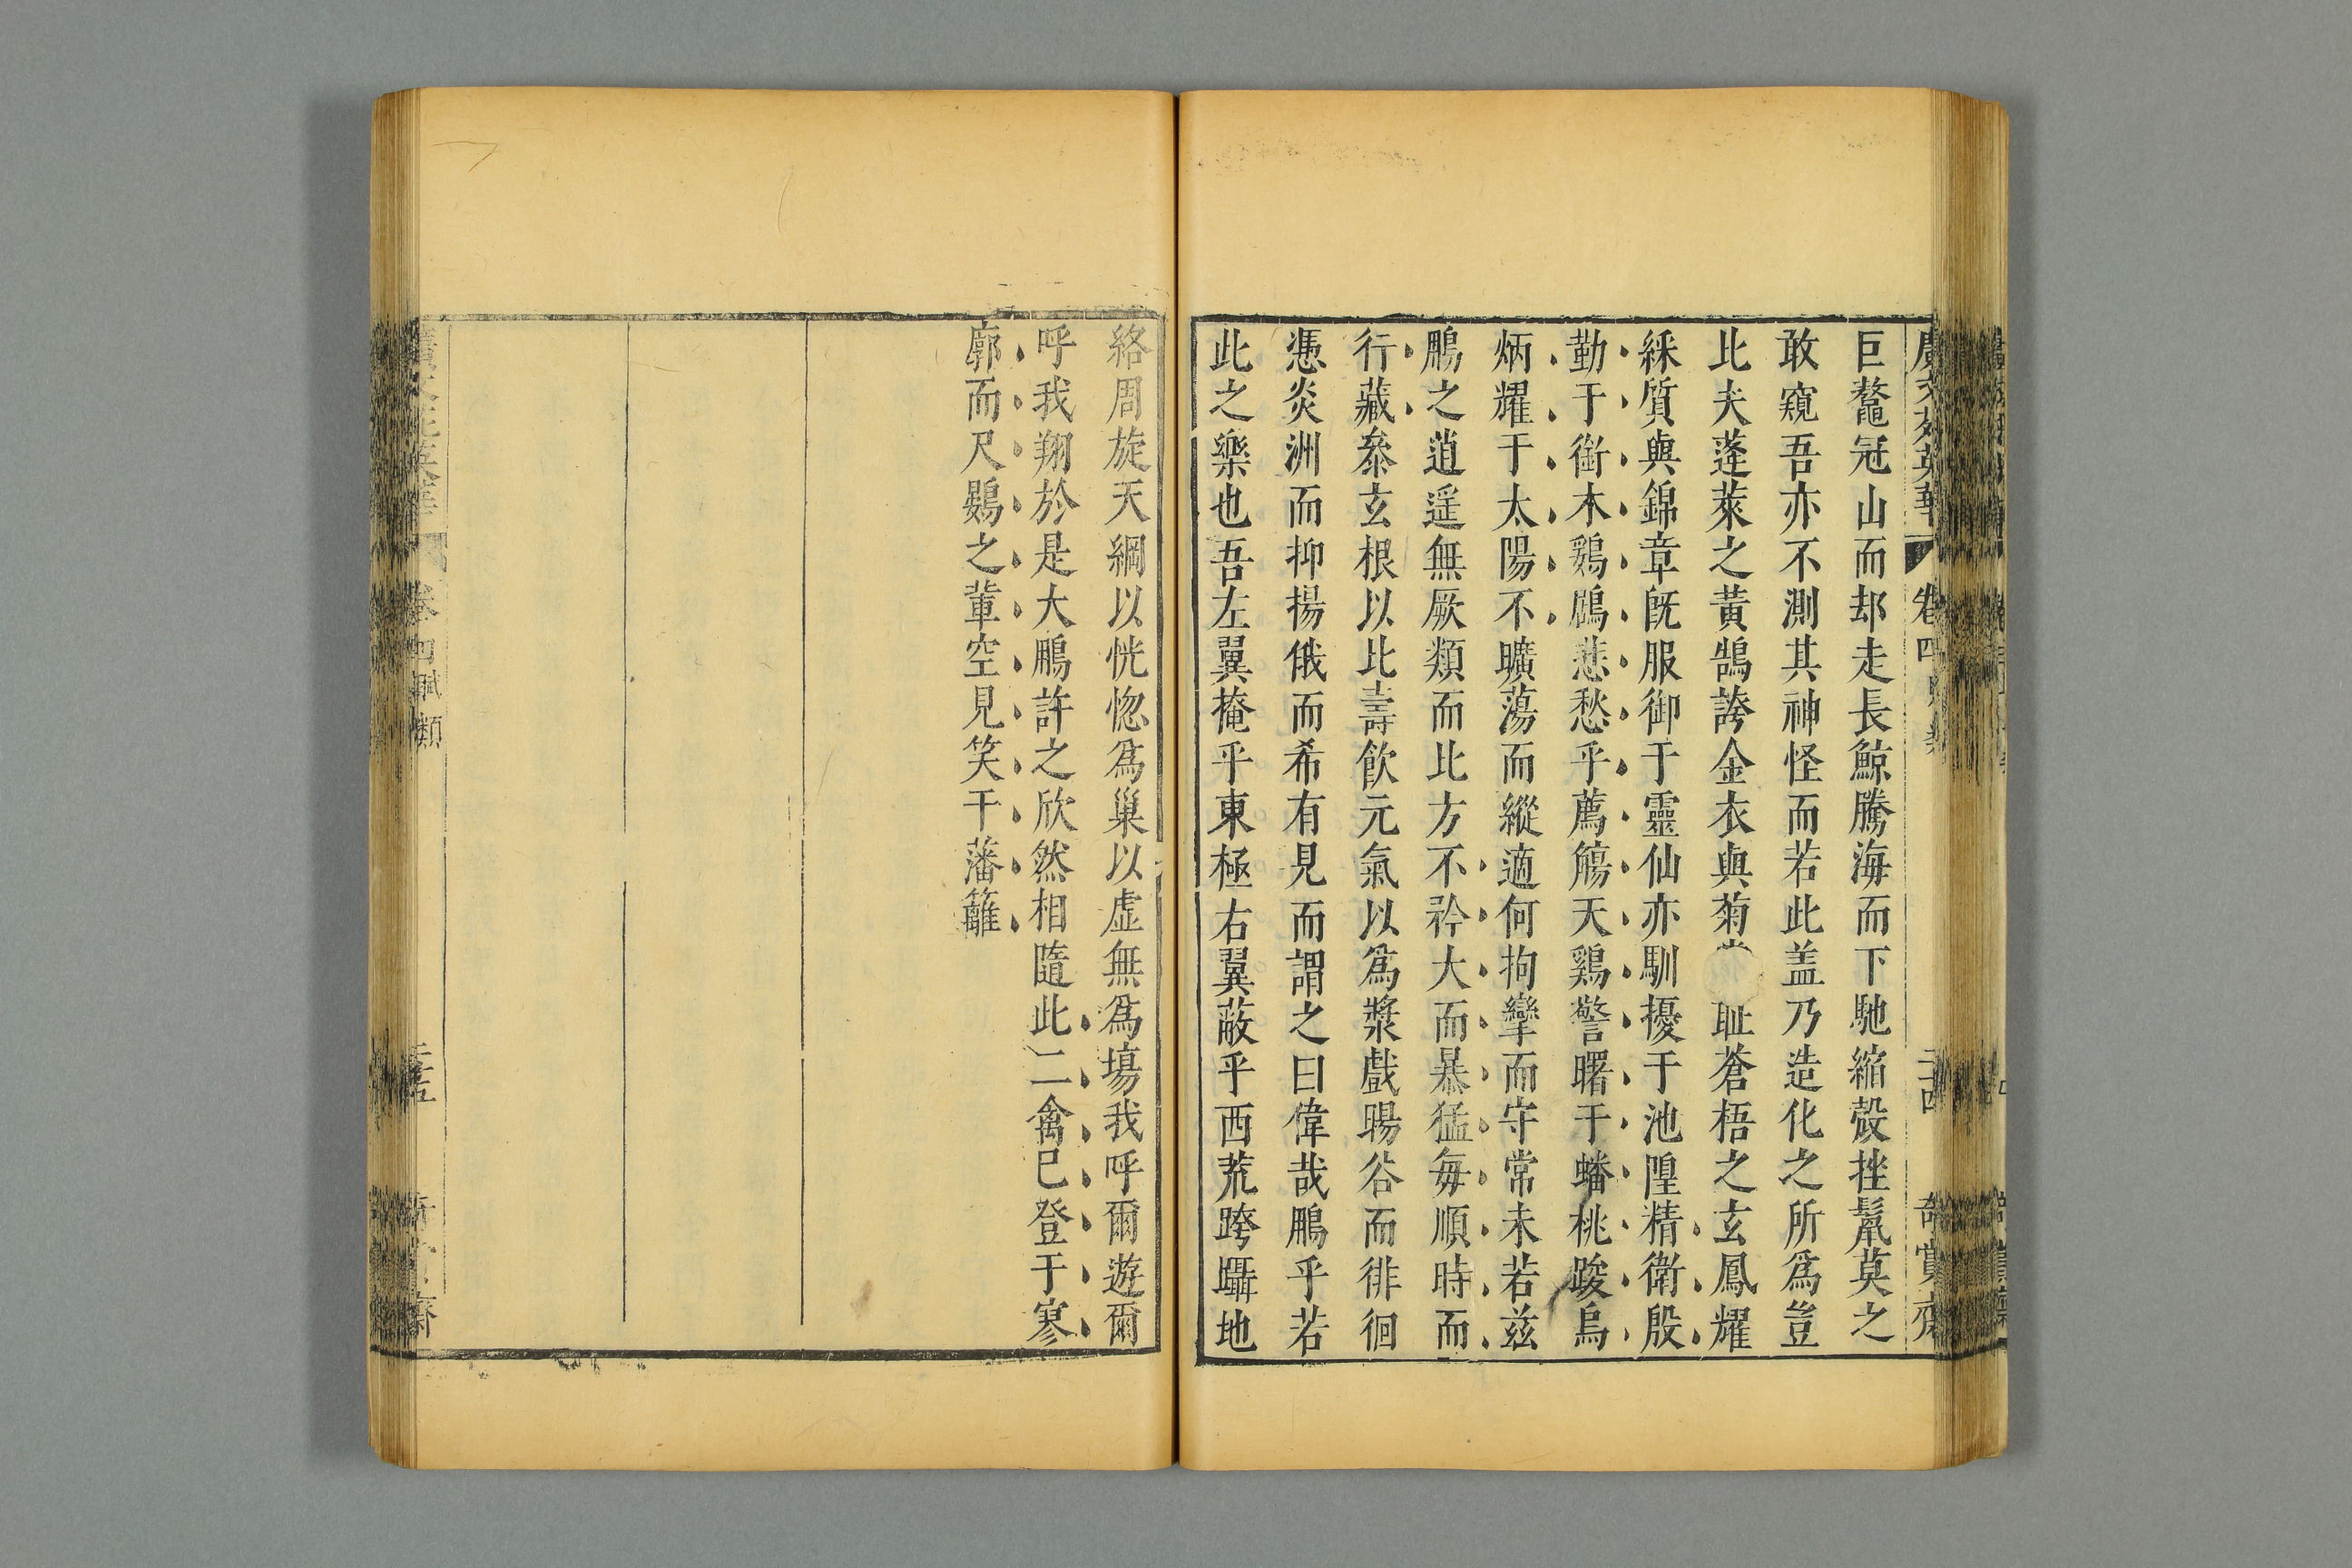 巨鼇冠山而却走長鯨騰海而下馳縮殼挫鬛莫之
敢窺吾亦不測其神怪而若此盖乃造化之所爲豈
比夫蓬萊之黄鵠誇金衣與菊 耻蒼梧之玄鳳耀
綵質與錦章旣服御于靈仙亦馴擾于池隍精衛殷
勤于銜木鶢鶋悲愁乎薦觴天鷄警曙于蟠桃踆烏
炳耀于太陽不曠蕩而縱適何拘攣而守常未若兹
鵬之逍遥無厥類而比方不矜大而暴猛每順時而
行藏叅玄根以比壽飲元氣以爲漿戲暘谷而徘徊
慿炎洲而抑揚俄而希有見而謂之曰偉哉鵬乎若
此之樂也吾左翼掩乎東極右翼蔽乎西荒跨躡地
絡周旋天綱以恍惚爲巢以虚無爲塲我呼爾遊爾
呼我翔於是大鵬許之欣然相隨此二禽已登于寥
廓而尺鷃之軰空見笑于藩籬
廣文苑英華 卷四 賦類 二十四 奇賞齋
廣文苑英華 卷四 賦類 二十五 齋